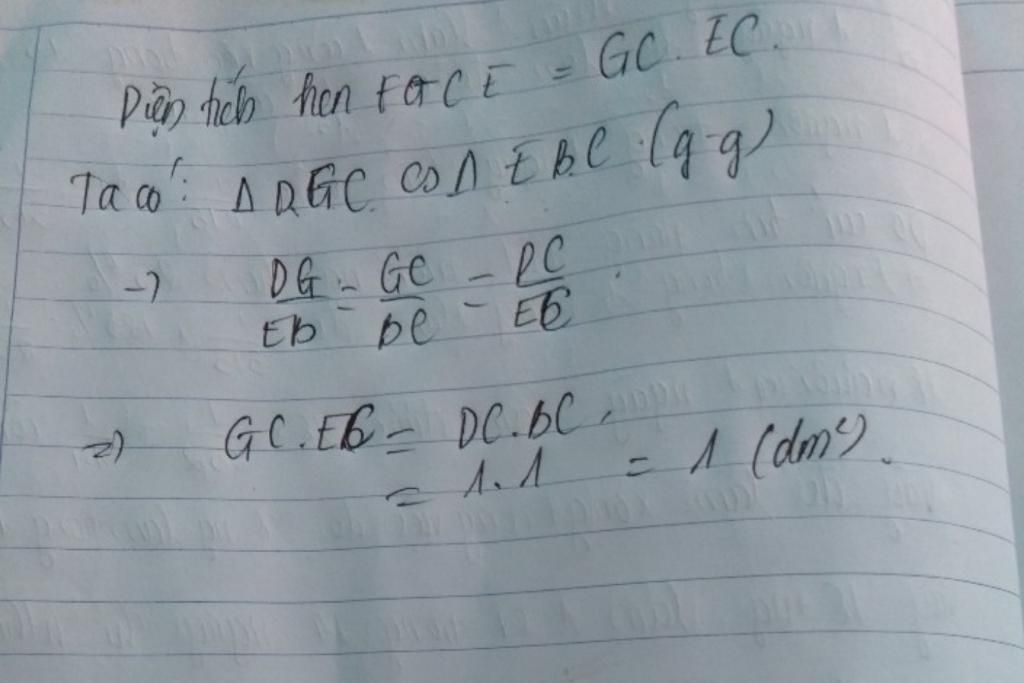 Diện tích hcn FGCE = GC. EC.
Ta có: Δ DGC ∽ Δ EBC (g-g)
→ DG/EB = GC/BC = DC/EC
=> GC.EC = DC.BC
= 1.1 = 1 (dm²).